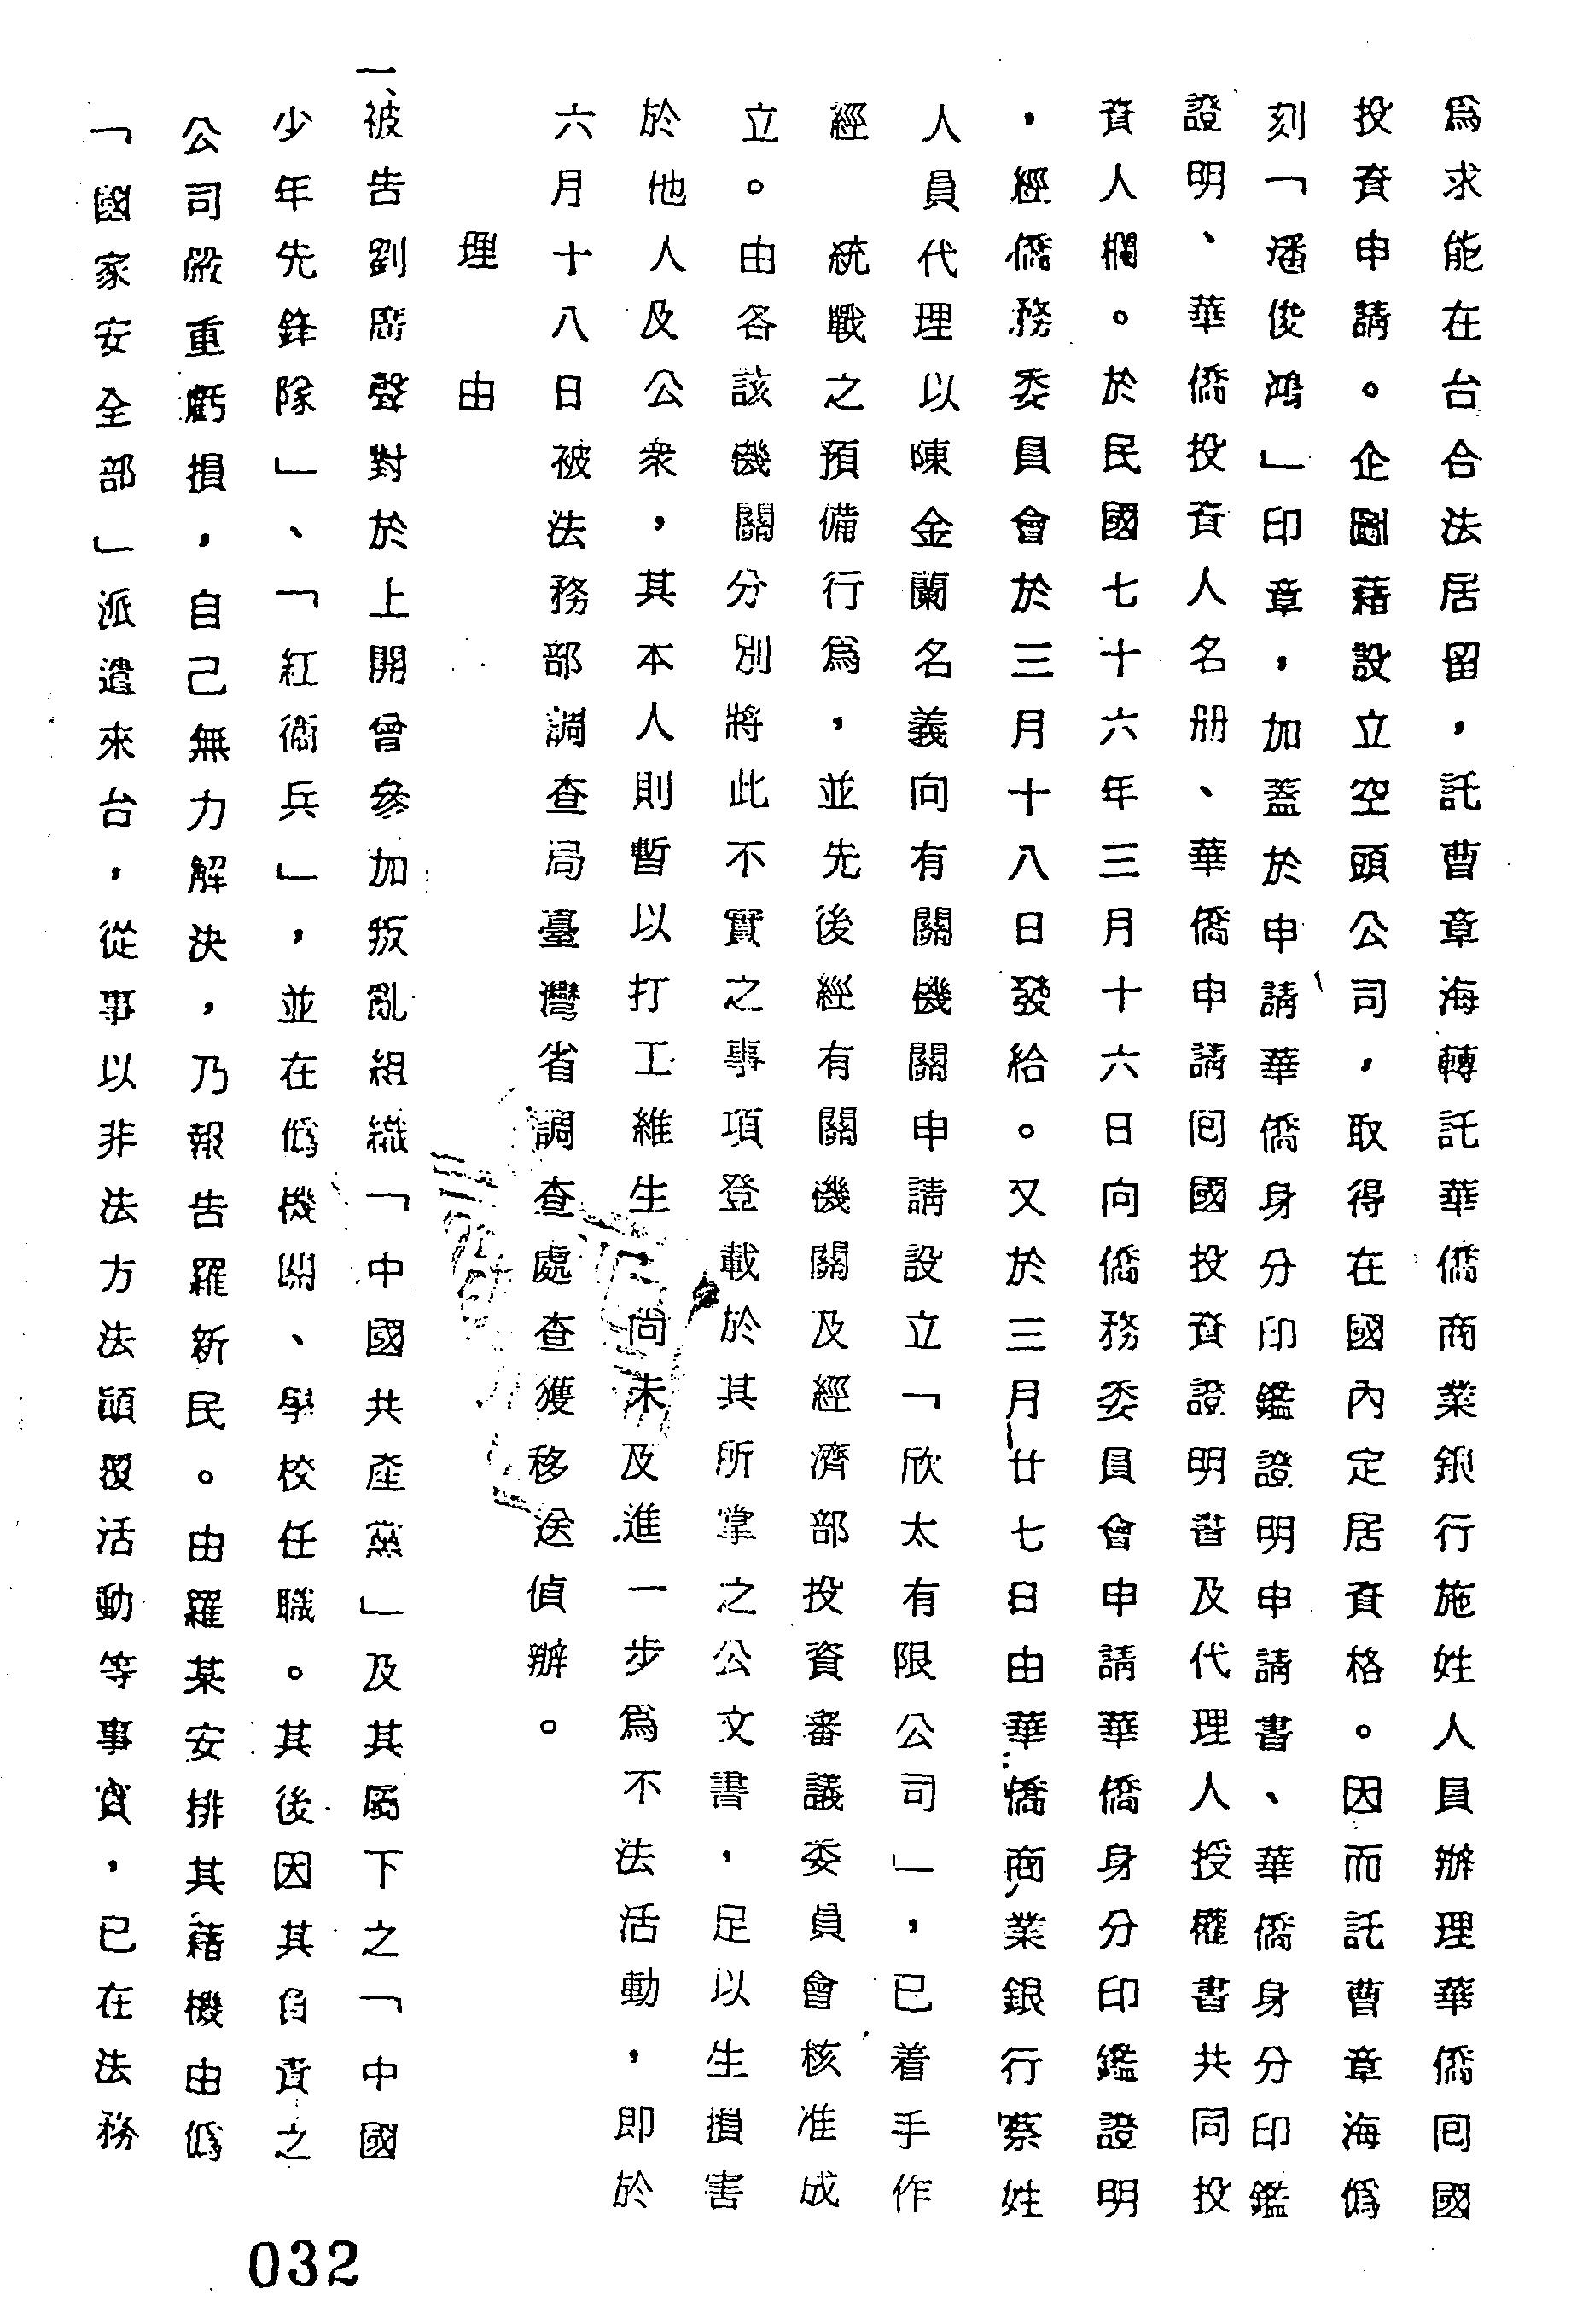 為求能在台合法居留，託曹章海轉託華僑商業銀行施姓人員辦理華僑回國
投資申請。企圖藉設立空頭公司，取得在國內定居資格。因而託曹章海偽
刻「潘俊鴻」印章，加蓋於申請華僑身分印鑑證明申請書、華僑身分印鑑
證明、華僑投資人名册、華僑申請回國投資證明書及代理人授權書共同投
資人欄。於民國七十六年三月十六日向僑務委員會申請華僑身分印鑑證明
，經僑務委員會於三月十八日發給。又於三月廿七日由華僑商業銀行蔡姓
人員代理以陳金蘭名義向有關機關申請設立「欣太有限公司」，已着手作
經統戰之預備行為，並先後經有關機關及經濟部投資審議委員會核准成
立。由各該機關分別將此不實之事項登載於其所掌之公文書，足以生損害
於他人及公衆，其本人則暫以打工維生，尚未及進一步為不法活動，即於
六月十八日被法務部調查局臺灣省調查處查獲移送偵辦。
理由
一、被告劉席聲對於上開曾參加叛亂組織「中國共產黨」及其屬下之「中國
少年先鋒隊」、「紅衛兵」，並在偽機關、學校任職。其後因其負責之
公司嚴重虧損，自己無力解決，乃報告羅新民。由羅某安排其藉機由偽
「國家安全部」派遣來台，從事以非法方法顛覆活動等事實，已在法務
032